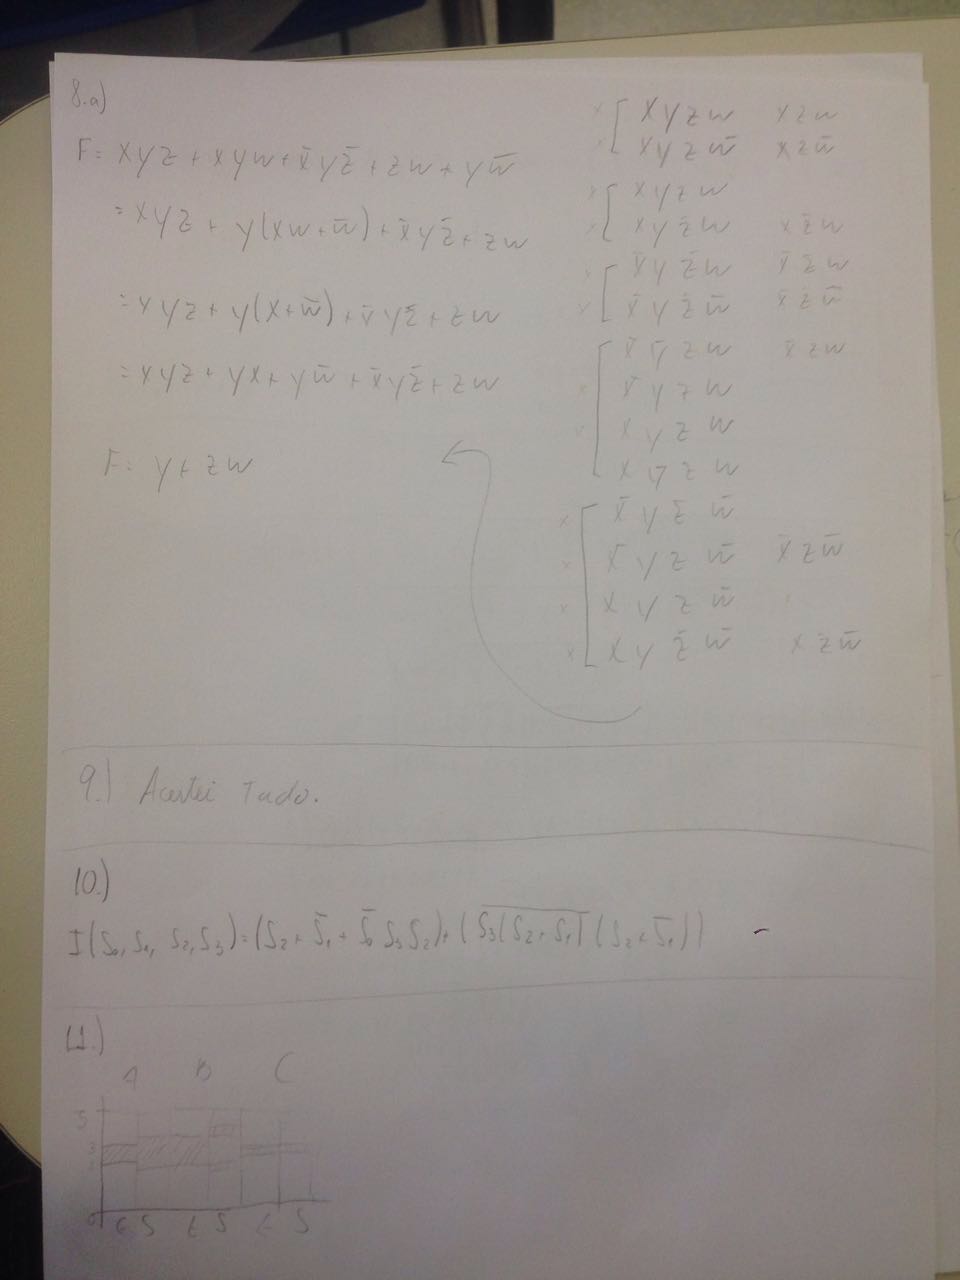 8.a)
F = xyz + xyw + x̄yz̄ + zw + yw̄
= xyz + y(xw + w̄) + x̄yz̄ + zw
= xyz + y(x + w̄) + x̄yz̄ + zw
= xyz + yx + yw̄ + x̄yz̄ + zw
F = y + zw
x [ x y z w x z w
x y z w̄ x z w̄
x [ x y z w
x x y z̄ w x z̄ w
x [ x̄ y z̄ w x̄ z̄ w
x x̄ y z̄ w̄ x̄ z̄ w̄
[ x̄ ȳ z w x̄ z w
x x̄ y z w
x x y z w
x ȳ z w
x [ x̄ y z̄ w̄
x x̄ y z w̄ x̄ z w̄
x x y z w̄
x x y z̄ w̄ x z̄ w̄
9.) Acertei Tudo.
10.)
I(S₀, S₁, S₂, S₃) = (S₂ + S̄₁ + S̄₀ S₃ S₂) + (\overline{S₃(S₂ + S₁)} (S₂ + S̄₁))
11.)
A B C
5
3
0
E S E S E S